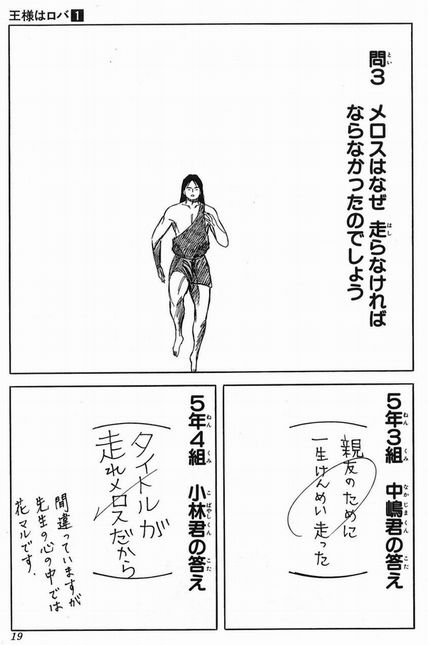 王様はロバ1
問3 メロスはなぜ 走らなければ
ならなかったのでしょう
5年3組 中嶋君の答え
親友のために
一生けんめい走った
5年4組 小林君の答え
タイトルが
走れメロスだから
間違っていますが
先生の心の中では
花マルです.
19